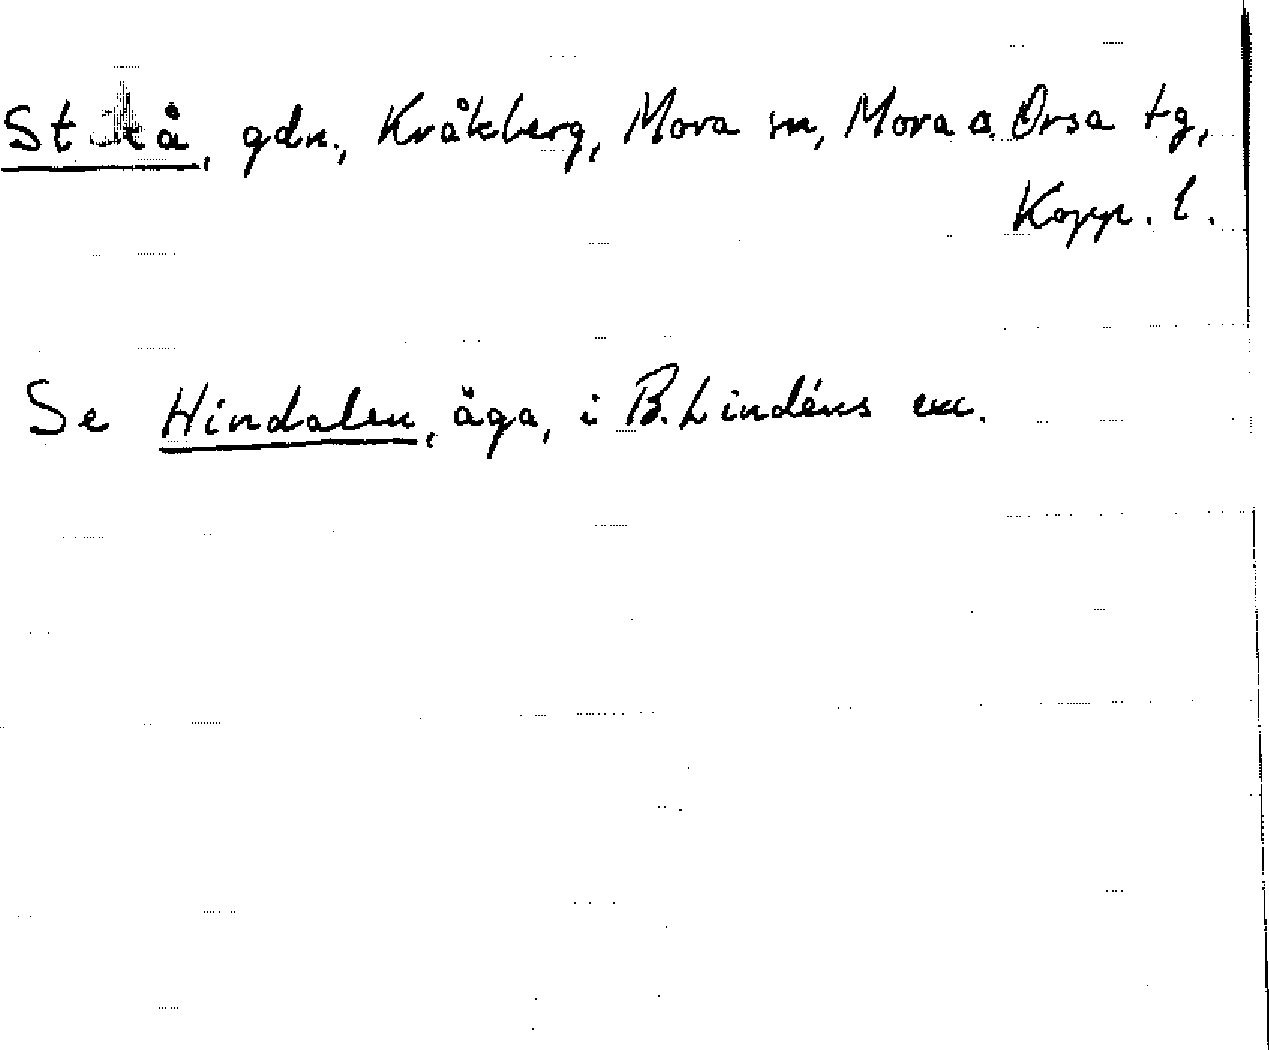 gdn., Kråkberg, Mora sn, Mora o. Orsa tg,
Kopp. l.
Se Hindalen, äga, i B. Lindéns ex.